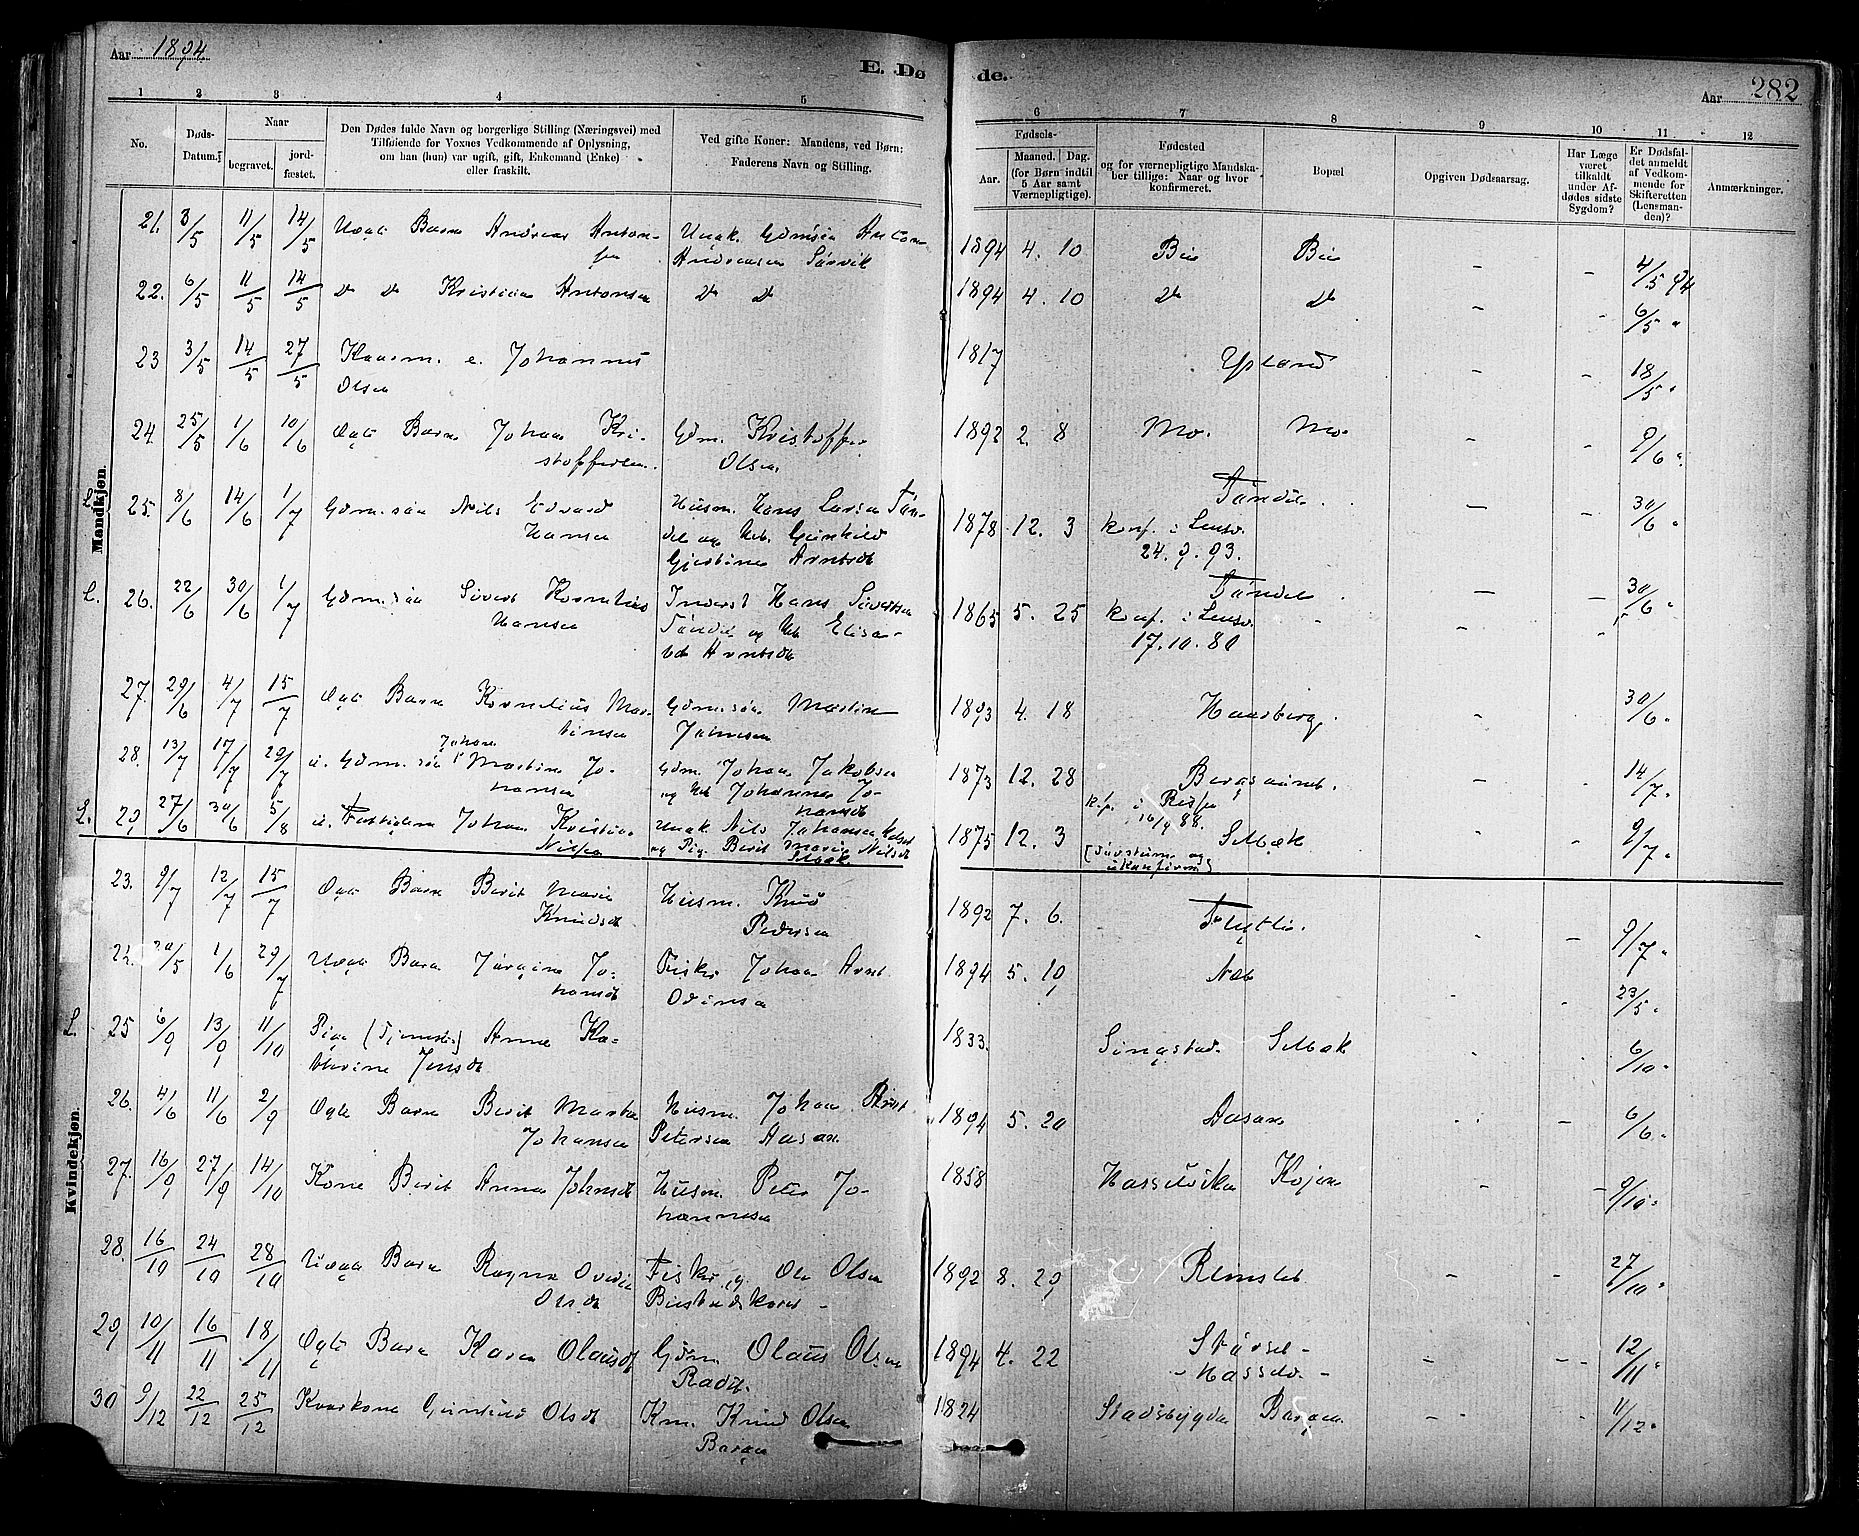 Aar 1894
E. Dø
de.
Aar
282
1 2 3 4 5 6 7 8 9 10 11 12
No.
Døds-
Datum.
Naar
begravet.
jord-
fæstet.
Den Dødes fulde Navn og borgerlige Stilling (Næringsvei) med
Tilføiende for Voxnes Vedkommende af Oplysning,
om han (hun) var ugift, gift, Enkemand (Enke)
eller fraskilt.
Ved gifte Koner: Mandens, ved Børn:
Faderens Navn og Stilling.
Fødsels-
Aar.
Maaned. Dag.
(for Børn indtil
5 Aar samt
Værnepligtige).
Fødested
og for værnepligtige Mandska-
ber tillige: Naar og hvor
konfirmeret.
Bopæl
Opgiven Dødsaarsag.
Har Læge
været
tilkaldt
under Af-
dødes sidste
Sygdom?
Er Dødsfal-
det anmeldt
af Vedkom-
mende for
Skifteretten
(Lensman-
den)?
Anmærkninger.
Mandkjøn.
21. 3/5 11/5 14/5 Uægte Barn Andreas Anton-
sen
Ungk. Gdmsøn Anton
Andreasen Sørvik
1894 4. 10 - - 4/5 94
22. 6/5 11/5 14/5 do do Kristian Antonsen do do 1894 4. 10 do do - - 6/5 "
23 3/5 14/5 27/5 Kaarm. e. Johannes
Olsen
1817 Ypland - - 18/5 "
24. 25/5 1/6 10/6 Ægte Barn Johan Kri-
stoffersen.
Gdm. Kristoffer
Olsen
1892 2. 8 Mo. Mo - - 9/6 "
L. 25. 8/6 14/6 1/7 Gdm.søn Nils Edvard
Hansen
Husm. Hans Larsen Tøn-
del og Gunhild
Gjertine Arntsdt
1878 12. 3 Tøndel.
konf. i Lensv.
24. 9. 93.
- - 30/6 "
L. 26. 22/6 30/6 1/7 Gdm.søn Sivert Kornelius
Hansen
Inderst Hans Sivertsen
Tøndel og Elisa-
bet Arntsdt
1865 5. 25 Tøndel
konf. i Lensv.
17. 10. 80
- - 30/6 "
27. 29/6 4/7 15/7 Ægte Barn Kornelius Mar-
tinsen
Gdm.søn Martin
Johnsen
1893 4. 18 Haarberg. - 30/6 "
28. 13/7 17/7 29/7 u. Gdm.søn Johan Martin Jo-
hansen
Gdm. Johan Jakobsen
og Johanna Jo-
hansdt
1873 12. 28
16/9 88.
- - 14/7 "
L. 29, 27/6 30/6 5/8 u. Johan Kristian
Nilsen
Ungk. Nils Johansen
og Pig. Berit Marie Nilsdt
Selbæk
1875 12. 3 Selbæk
(Døvstum og
ukonfirm)
- 9/7 "
Kvindekjøn.
23. 9/7 12/7 15/7 Ægte Barn Berit Marie
Knudsdt
Husm. Knud
Pedersen
1892 7. 6. - - 9/7 "
24. 20/5 1/6 29/7 Uægte Barn Jørgine Jo-
hansdt
Fisker Johan Arnt
Odinsen
1894 5. 19 23/5 "
L. 25 6/9 13/9 11/10 Pige (Tjenestep) Anne Ka-
thrine Jensdt
1833. Singstad. Selbæk 6/10 "
26. 4/6 11/6 2/9 Ægte Barn Berit Marta
Johansen
Husm. Johan Arnt
Petersen Aasan
1894 5. 20 Aasan - 6/6 "
27. 16/9 27/9 14/10 Kone Berit Anna Johnsdt
Husm. Peter Jo-
hannesen
1858 Hasselviken - - 9/10 "
28. 16/10 24/10 28/10 Uægte Barn Ragna
Olsdt
Fisker Ole Olsen
1892 8. 29 - - 27/10 "
29 10/11 16/11 18/11 Ægte Barn Karen Olausdt
Gdm Olaus Olsen
1894 4. 22 Størsel-
- Hasselv. -
- - - 12/11 "
30 9/12 22/12 25/12 Gunhild Olsdt
Km. Knud Olsen
Borgen
1824 Stadsbygden Borgen - - 11/12 "